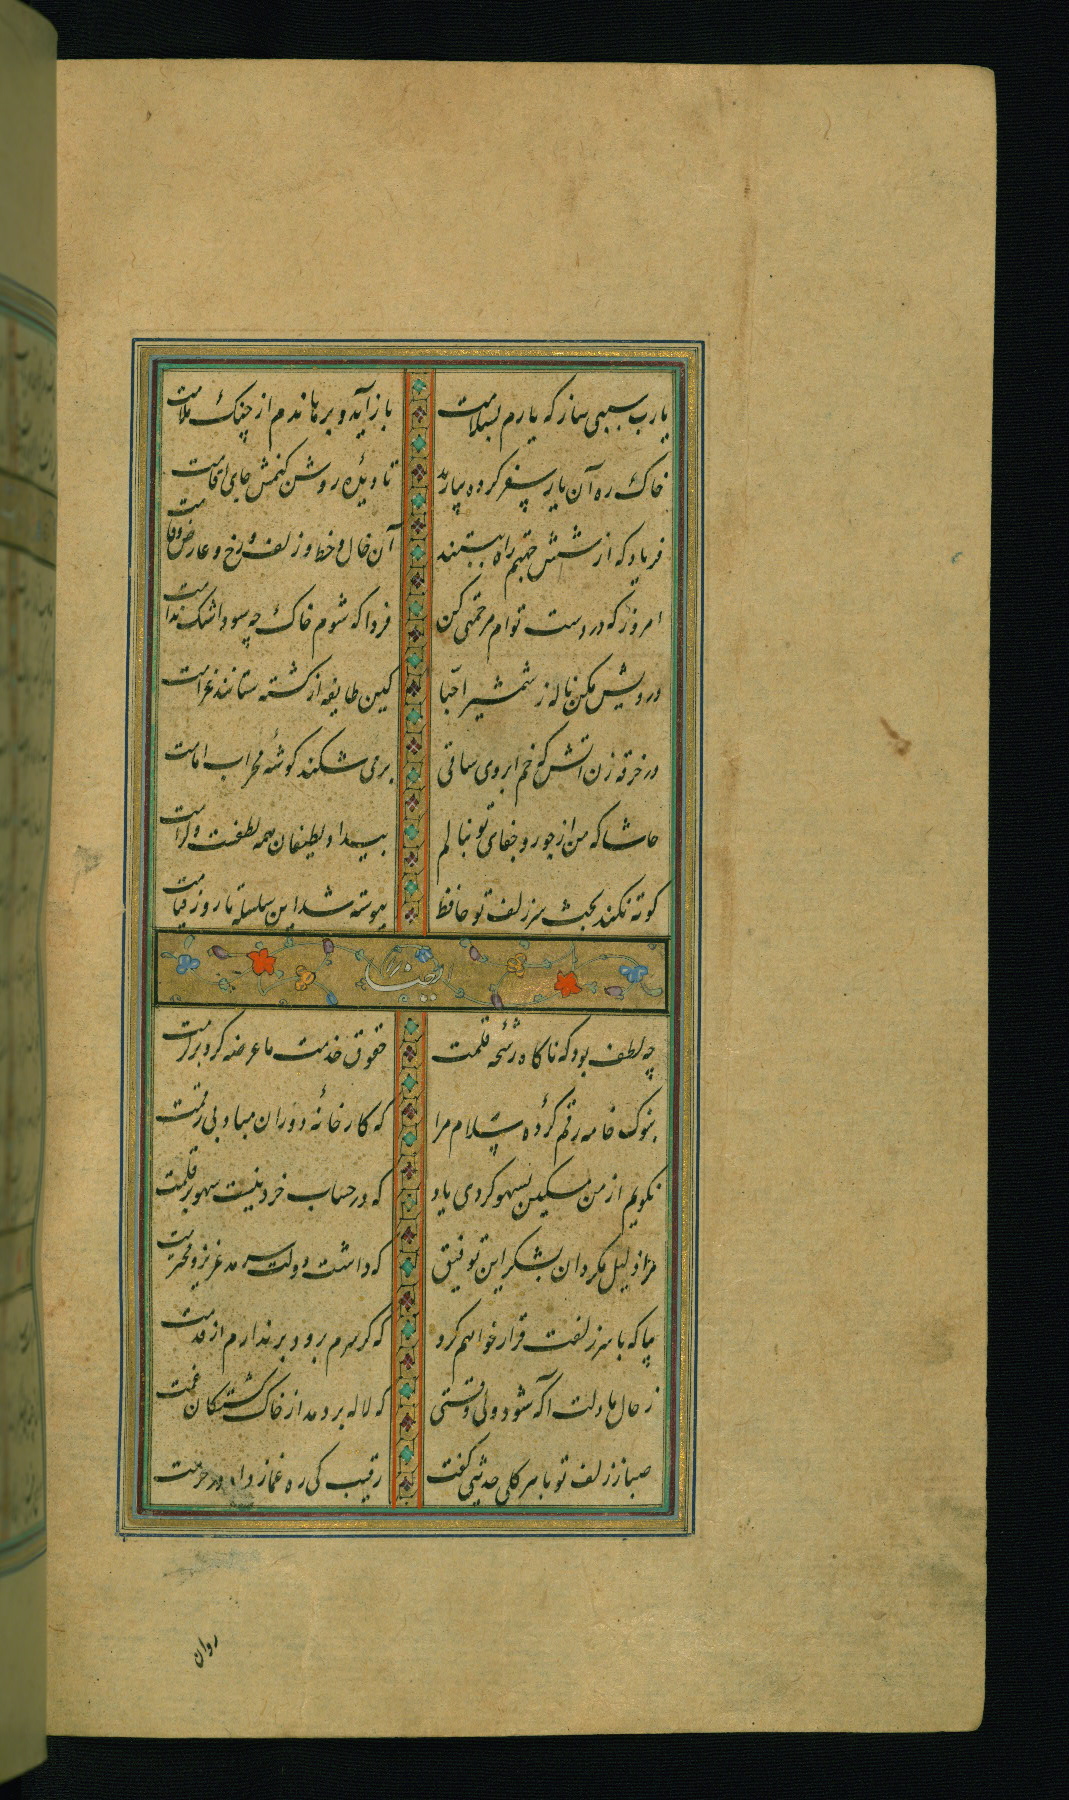 یارب سببی ساز که یارم بسلامت
باز آید و برهاندم از چنگ ملامت
خاک ره آن یار سفر کرده بیارید
تا دیده روشن کنمش جای اقامت
فریاد که از شش جهتم راه ببستند
آن خال و خط و زلف و رخ و عارض و قامت
امروز که در دست توام مرحمتی کن
فردا که شوم خاک چه سود اشک ندامت
درویش مکن ناله ز شمشیر احبا
کین طایفه از کشته ستانند غرامت
در خرقه زن آتش که خم ابروی ساقی
بر می شکند گوشه محراب امامت
حاشا که من از جور و جفای تو بنالم
بیداد لطیفان همه لطفست و کرامت
کوته نکند بحث سر زلف تو حافظ
پیوسته شد این سلسله تا روز قیامت
چه لطف بود که ناگاه رشحه قلمت
حقوق خدمت ما عرضه کرد بر کرمت
بنوک خامه رقم کرده سلام مرا
که کارخانه دوران مباد بی رقمت
نگویم از من مسکین بسهو کردی یاد
که در حساب خرد نیست سهو بر قلمت
مرا ذلیل مگردان بشکر این توفیق
که داشت دولت سرمد عزیز و محترمت
بیا که با سر زلفت قرار خواهم کرد
که گر سرم برود برندارم از قدمت
ز حال ما دلت آگه شود ولی وقتی
که لاله بردمد از خاک کشتگان غمت
صبا ز زلف تو با هر گلی حدیثی گفت
رقیب کی ره غماز داد در حرمت
روان